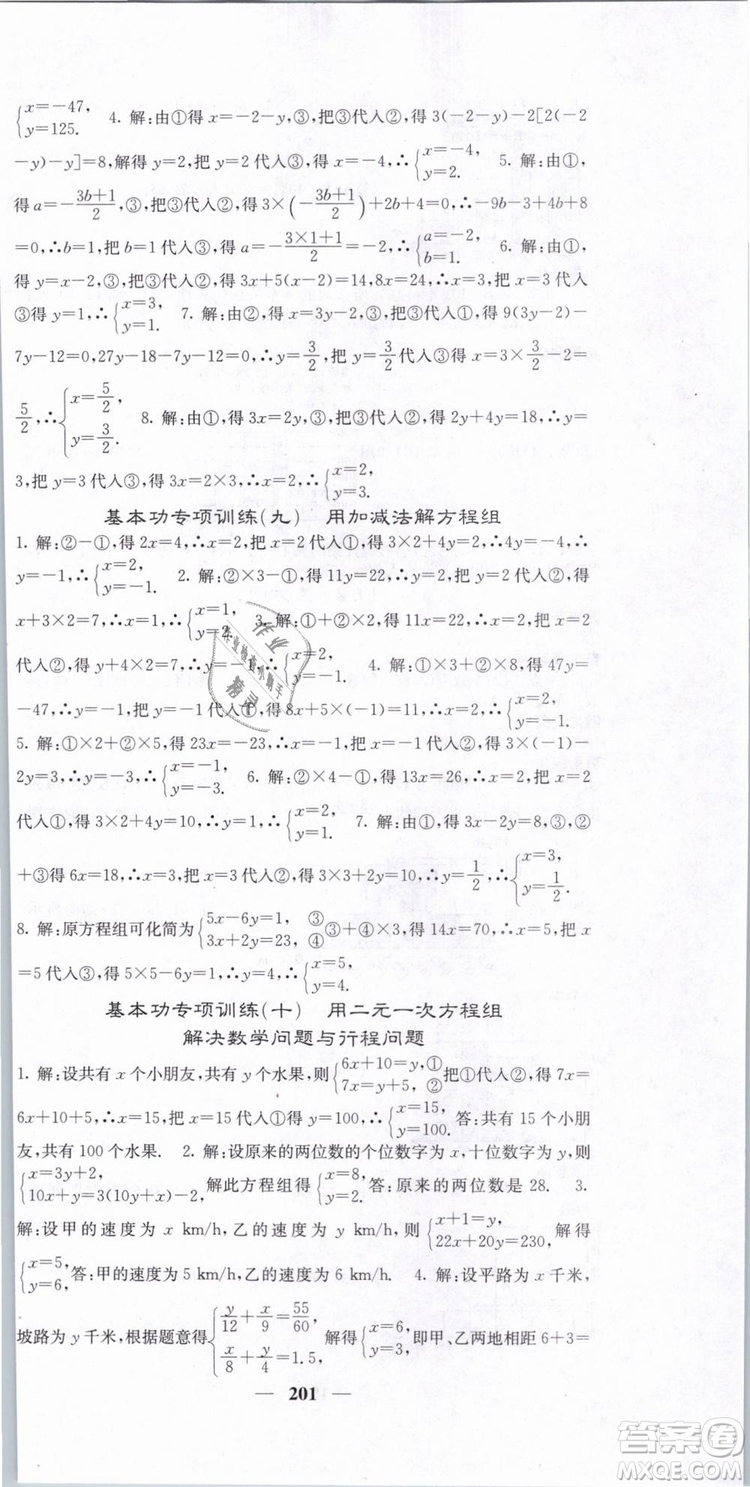 {x=-47, y=125. 4. 解:由①得 x=-2-y,③把③代入②,得 3(-2-y)-2[2(-2
-y)-y]=8,解得 y=2,把 y=2 代入③,得 x=-4,∴{x=-4, y=2. 5. 解:由①,
得 a=-(3b+1)/2,③,把③代入②,得 3×(-(3b+1)/2)+2b+4=0,∴-9b-3+4b+8
=0,∴b=1,把 b=1 代入③,得 a=-(3×1+1)/2=-2,∴{a=-2, b=1. 6. 解:由①,
得 y=x-2,③把③代入②,得 3x+5(x-2)=14,8x=24,∴x=3,把 x=3 代入
③得 y=1,∴{x=3, y=1. 7. 解:由②,得 x=3y-2,③,把③代入①,得 9(3y-2)-
7y-12=0,27y-18-7y-12=0,∴y=3/2,把 y=3/2代入③得 x=3×3/2-2=
5/2,∴{x=5/2, y=3/2. 8. 解:由①,得 3x=2y,③,把③代入①,得 2y+4y=18,∴y=
3,把 y=3 代入③,得 3x=2×3,∴x=2,∴{x=2, y=3.
基本功专项训练(九) 用加减法解方程组
1. 解:②-①,得 2x=4,∴x=2,把 x=2 代入①,得 3×2+4y=2,∴4y=-4,∴
y=-1,∴{x=2, y=-1. 2. 解:②×3-①,得 11y=22,∴y=2,把 y=2 代入②,得
x+3×2=7,∴x=1,∴{x=1, y=2. 3. 解:①+②×2,得 11x=22,∴x=2,把 x=2
代入②,得 y+4×2=7,∴y=-1,∴{x=2, y=-1. 4. 解:①×8-②,得 47y=
-47,∴y=-1,把 y=-1 代入②,得 8x+5×(-1)=11,∴x=2,∴{x=2, y=-1.
5. 解:①×2+②×5,得 23x=-23,∴x=-1,把 x=-1 代入②得 3×(-1)-
2y=3,∴y=-3,∴{x=-1, y=-3. 6. 解:①+②×4-②,得 13x=26,∴x=2,把 x=2
代入②得 3×2+4y=10,∴y=1,∴{x=2, y=1. 7. 解:①×2,得 3x-2y=8,③,②
+③得 6x=18,∴x=3,把 x=3 代入②,得 3×3+2y=10,∴y=1/2,∴{x=3, y=1/2.
8. 解:原方程组可化简为{5x-6y=1, ③ 3x+2y=23, ④ ③+④×3,得 14x=70,∴x=5,把 x
=5 代入③,得 5×5-6y=1,∴y=4,∴{x=5, y=4.
基本功专项训练(十) 用二元一次方程组
解决数学问题与行程问题
1. 解:设共有 x 个小朋友,有 y 个水果,则{6x+10=y,① 7x=y+5, ②把①代入②,得 7x=
6x+10+5,∴x=15,把 x=15 代入①,得 y=100,∴{x=15, y=100. 答:共有 15 个小朋
友,共有 100 个水果. 2. 解:设原来的两位数的个位数字为 x,十位数字为 y,则
{x=3y+2, 10x+y=3(10y+x)-2, 解此方程组得{x=8, y=2. 答:原来的两位数是 28. 3.
解:设甲的速度为 x km/h,乙的速度为 y km/h,则{x+1=y, 22x+20y=230, 解得
{x=5, y=6, 答:甲的速度为 5 km/h,乙的速度为 6 km/h. 4. 解:设平路为 x 千米,
坡路为 y 千米,根据题意得{y/12+x/9=55/60, x/8+y/4=1.5, 解得{x=6, y=3, 即甲、乙两地相距 6+3=
— 201 —
答案圈
MXQE.COM